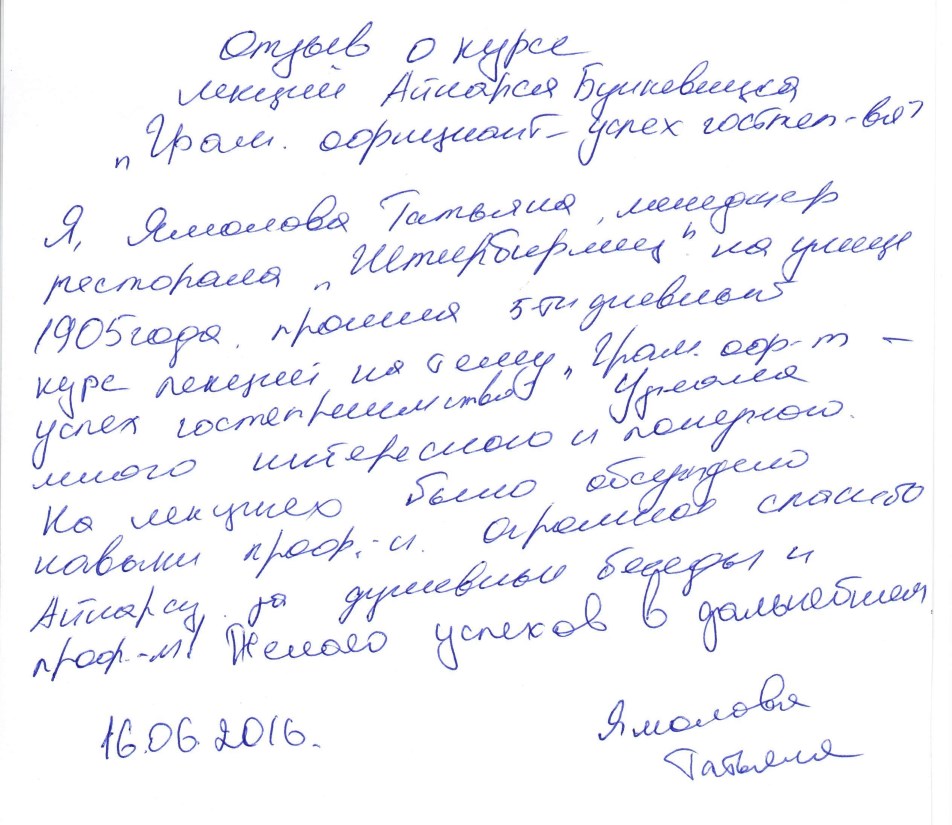 Отзыв о курсе
лекций Айнарса Бункевицса
„Грам. официант – успех гостеп-ва"
Я, Ямолова Татьяна, менеджер
ресторана „Штирбирлиц" на улице
1905 года, прошла 5-ти дневный
курс лекций на тему „Грам. оф-т –
успех гостеприимства" Узнала
много интересного и полезного.
На лекциях было обсуждено
навыки проф.-и. Огромное спасибо
Айнарсу за душевные беседы и
проф.-м! Желаю успехов в дальнейшем
16.06.2016.
Ямолова
Татьяна